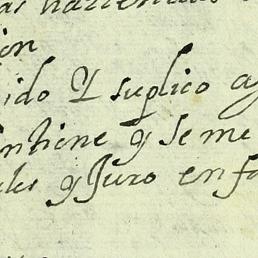 haziendas
ion
ido Y suplico a
ntiene q Se me
ales q Juro en fo